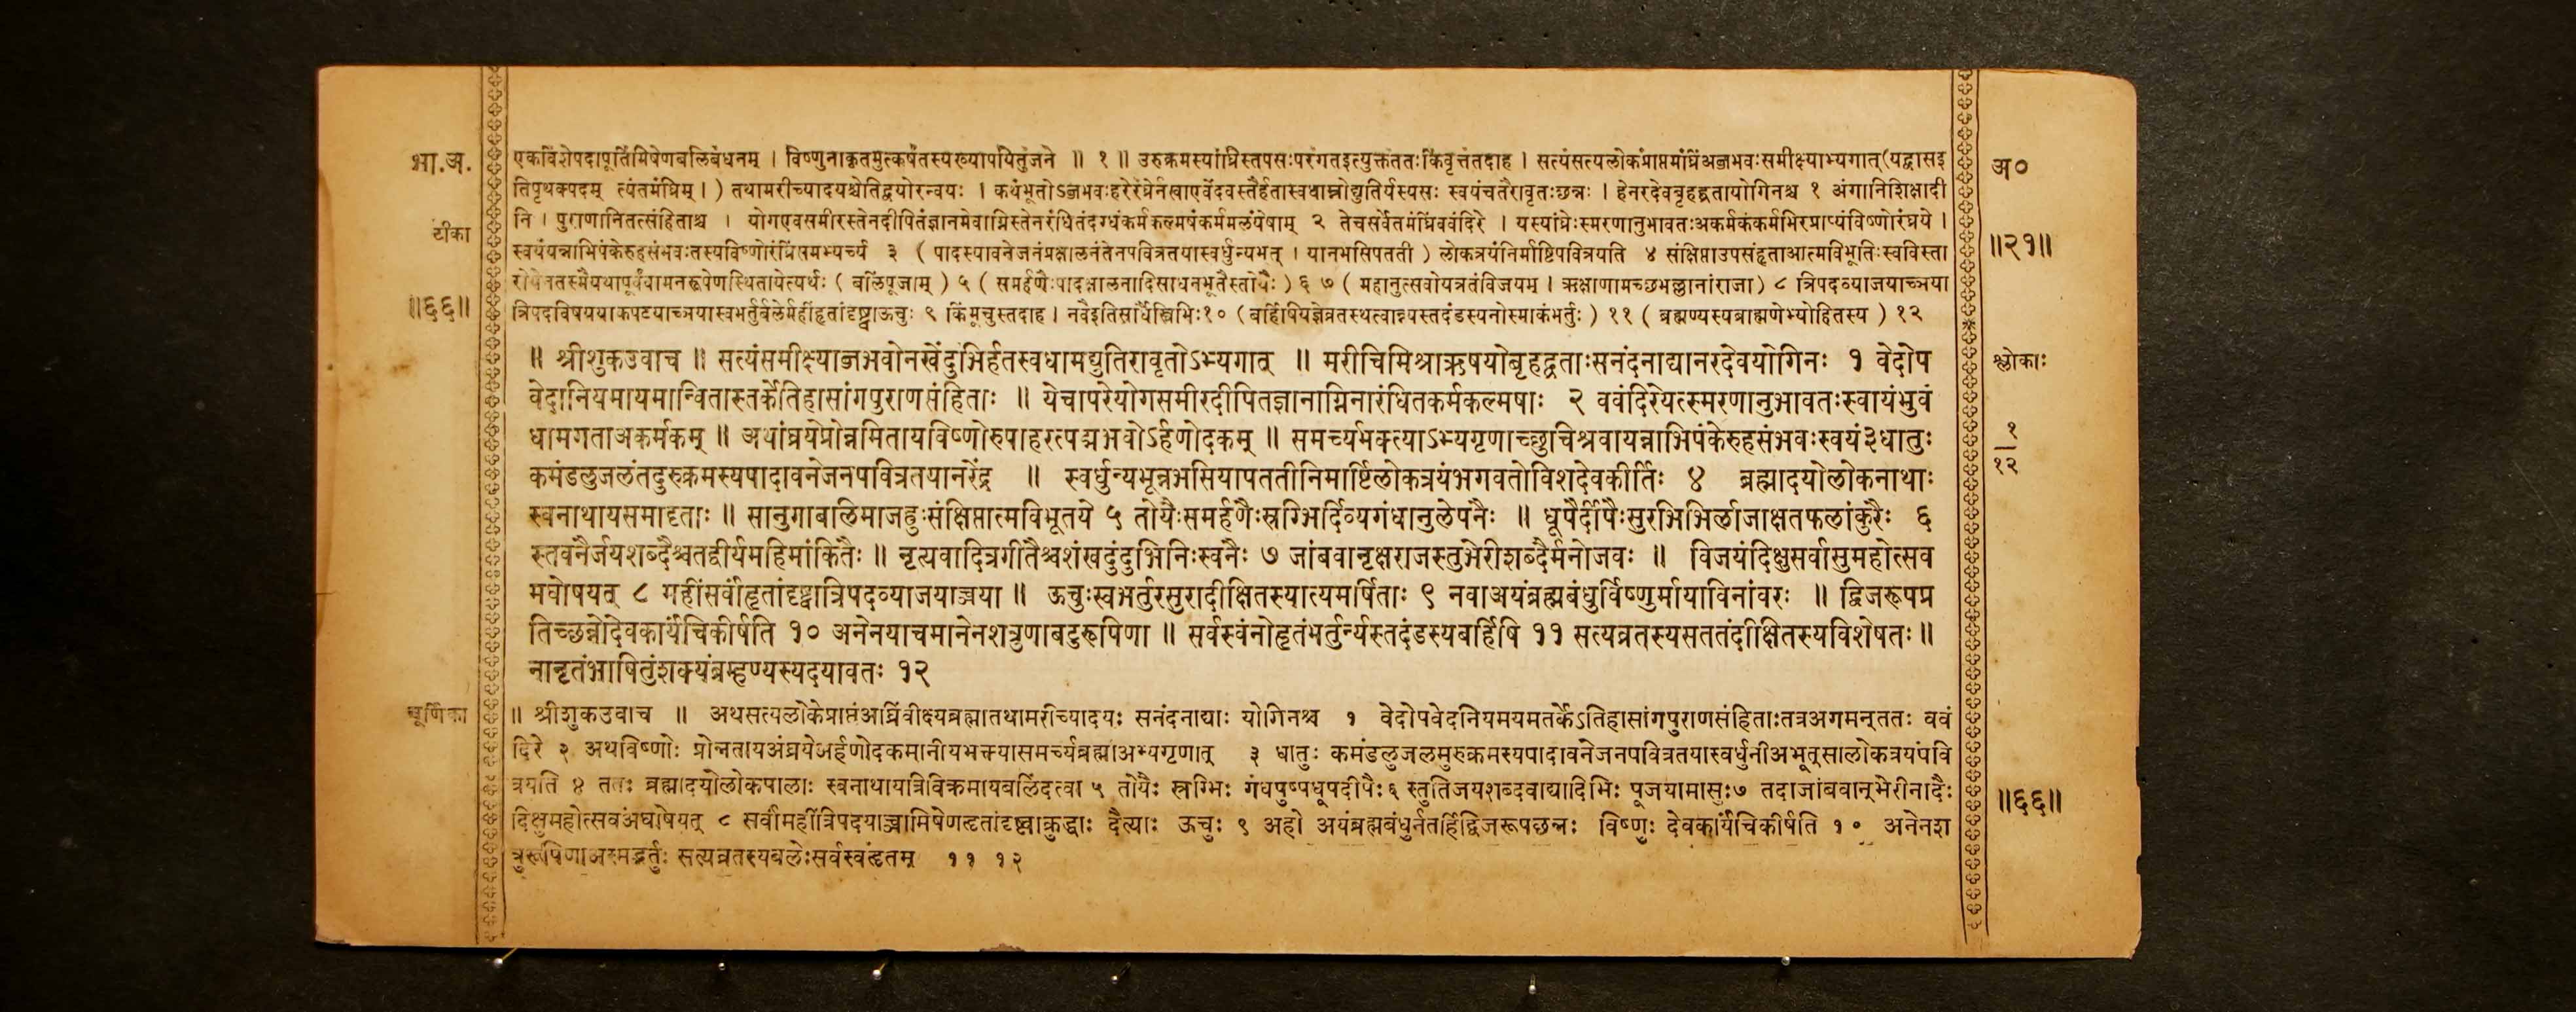 भा.अ.
टीका
॥६६॥
एकविंशेपदापूर्तिमिषेणबलिबंधनम् । विष्णुनाकृतमुत्कर्षंतस्यख्यापयितुंजने ॥ १ ॥ उरुक्रमस्यांघ्रिस्तपसःपरंगतइत्युक्तंततःकिंवृत्तंतदाह । सत्यंसत्यलोकंप्राप्तमांघ्रिंअब्जभवःसमीक्ष्याभ्यगात्(यद्वासइ
तिपृथक्पदम् त्यंतमंघ्रिम्।) तथामरीच्यादयश्चेतिद्वयोरन्वयः । कथंभूतोऽब्जभवःहरेरंघ्रेर्नखाएवेंदवस्तैर्हतास्वधाम्नोद्युतिर्यस्यसः स्वयंचतैरावृतःछन्नः । हेनरदेवबृहद्व्रतायोगिनश्च १ अंगानिशिक्षादी
नि । पुराणानितत्संहिताश्च । योगएवसमीरस्तेनदीपितंज्ञानमेवाग्निस्तेनरंधितंदग्धंकर्मकल्मषंकर्ममलंयेषाम् २ तेचसर्वेतमंघ्रिंववंदिरे । यस्यांघ्रेःस्मरणानुभावतःअकर्मकंकर्मभिरप्राप्यंविष्णोरंघ्रये ।
स्वयंयन्नाभिपंकेरुहसंभवःतस्यविष्णोरंघ्रिंसमभ्यर्च्य ३ ( पादस्यावनेजनंप्रक्षालनंतेनपवित्रतयास्वर्धुन्यभूत् । यानभसिपतती ) लोकत्रयंनिर्मार्ष्टिपवित्रयति ४ संक्षिप्ताउपसंहृताआत्मविभूतिःस्वविस्ता
रोयेनतस्मैयथापूर्वंवामनरूपेणस्थितायेत्यर्थः ( बलिंपूजाम् ) ५ ( समर्हणैःपादक्षालनादिसाधनभूतैस्तोयैः ) ६ ७ ( महानुत्सवोयत्रतंविजयम् । ऋक्षाणामच्छभल्लानांराजा) ८ त्रिपदव्याजयाच्ञया
त्रिपदविषययाकपटयाच्ञयास्वभर्तुर्बलेर्महींहृतांदृष्ट्वाऊचुः ९ किंमूचुस्तदाह । नवैइतिसार्धैस्त्रिभिः१० (बर्हिषियज्ञेव्रतस्थत्वान्न्यस्तदंडस्यनोस्माकंभर्तुः ) ११ ( ब्रह्मण्यस्यब्राह्मणेभ्योहितस्य ) १२
॥ श्रीशुकउवाच ॥ सत्यंसमीक्ष्याब्जभवोनखेंदुभिर्हतस्वधामद्युतिरावृतोऽभ्यगात् ॥ मरीचिमिश्राऋषयोबृहद्व्रताःसनंदनाद्यानरदेवयोगिनः १ वेदोप
वेदानियमायमान्वितास्तर्केतिहासांगपुराणसंहिताः ॥ येचापरेयोगसमीरदीपितज्ञानाग्निनारंधितकर्मकल्मषाः २ ववंदिरेयत्स्मरणानुभावतःस्वायंभुवं
धामगताअकर्मकम् ॥ अथांघ्रयेप्रोन्नमितायविष्णोरुपाहरत्पद्मभवोऽर्हणोदकम् ॥ समर्च्यभक्त्याऽभ्यगृणाच्छुचिश्रवायन्नाभिपंकेरुहसंभवःस्वयं३धातुः
कमंडलुजलंतदुरुक्रमस्यपादावनेजनपवित्रतयानरेंद्र ॥ स्वर्धुन्यभून्नभसियापततीनिमार्ष्टिलोकत्रयंभगवतोविशदेवकीर्तिः ४ ब्रह्मादयोलोकनाथाः
स्वनाथायसमादृताः ॥ सानुगाबलिमाजह्रुःसंक्षिप्तात्मविभूतये ५ तोयैःसमर्हणैःस्रग्भिर्दिव्यगंधानुलेपनैः ॥ धूपैर्दीपैःसुरभिभिर्लाजाक्षतफलांकुरैः ६
स्तवनैर्जयशब्दैश्चतद्वीर्यमहिमांकितैः ॥ नृत्यवादित्रगीतैश्चशंखदुंदुभिनिःस्वनैः ७ जांबवानृक्षराजस्तुभेरीशब्दैर्मनोजवः ॥ विजयंदिक्षुसर्वासुमहोत्सव
मघोषयत् ८ महींसर्वांहृतांदृष्ट्वात्रिपदव्याजयाच्ञया ॥ ऊचुःस्वभर्तुरसुरादीक्षितस्यात्यमर्षिताः ९ नवाअयंब्रह्मबंधुर्विष्णुर्मायाविनांवरः ॥ द्विजरूपप्र
तिच्छन्नोदेवकार्यंचिकीर्षति १० अनेनयाचमानेनशत्रुणाबटुरूपिणा ॥ सर्वस्वंनोहृतंभर्तुर्न्यस्तदंडस्यबर्हिषि ११ सत्यव्रतस्यसततंदीक्षितस्यविशेषतः॥
नानृतंभाषितुंशक्यंब्रम्हण्यस्यदयावतः १२
चूर्णिका
॥ श्रीशुकउवाच ॥ अथसत्यलोकेप्राप्तंआंघ्रिंवीक्ष्यब्रह्मातथामरीच्यादयः सनंदनाद्याः योगिनश्च १ वेदोपवेदनियमयमतर्केऽतिहासांगपुराणसंहिताःतत्रअगमन्ततः ववं
दिरे २ अथविष्णोः प्रोन्नतायअंघ्रयेअर्हणोदकमानीयभक्त्यासमर्च्यब्रह्माअभ्यगृणात् ३ धातुः कमंडलुजलमुरुक्रमस्यपादावनेजनपवित्रतयास्वर्धुनीअभूत्सालोकत्रयंपवि
त्रयति ४ ततः ब्रह्मादयोलोकपालाः स्वनाथायत्रिविक्रमायबलिंदत्वा ५ तोयैः स्रग्भिः गंधपुष्पधूपदीपैः६ स्तुतिजयशब्दवाद्यादिभिः पूजयामासुः७ तदाजांबवान्भेरीनादैः
दिक्षुमहोत्सवंअघोषयत् ८ सर्वांमहींत्रिपदयाच्ञामिषेणहृतांदृष्ट्वाक्रुद्धाः दैत्याः ऊचुः ९ अहो अयंब्रह्मबंधुर्नतर्हिद्विजरूपछन्नः विष्णुः देवकार्यंचिकीर्षति १० अनेनश
त्रुरूपिणाअस्मद्भर्तुः सत्यव्रतस्यबलेःसर्वस्वंहृतम् ११ १२
अ०
॥२१॥
श्लोकाः
१
१२
॥६६॥